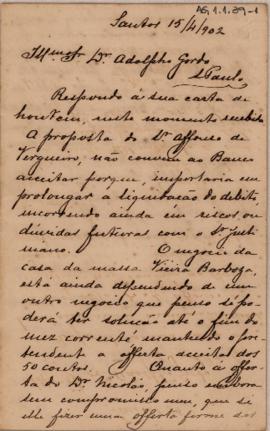 AG.1.1.29-1
Santos 15/4/902
Illmo Sr. Dr. Adolpho Gordo
S. Paulo
Respondo á sua carta de
hontem, neste momento recebida
A proposta do Sr. Affonso de
Vergueiro, não convem ao Banco
acceitar porque importaria em
prolongar a liquidação do debito,
incorrendo ainda em riscos ou
duvidas futuras com o Sr. Justi
niano.
O negocio da
casa da massa Vieira Barboza,
está ainda dependendo de um
outro negocio que penso só po
derá ter solução até o fim do
mez corrente, mantendo o pre
tendent a offerta acceita dos
50 contos. Quanto á offer
ta do Dr. Nicolão, penso embora
sem compromisso meu, que si
elle fizer uma offerta firme dos